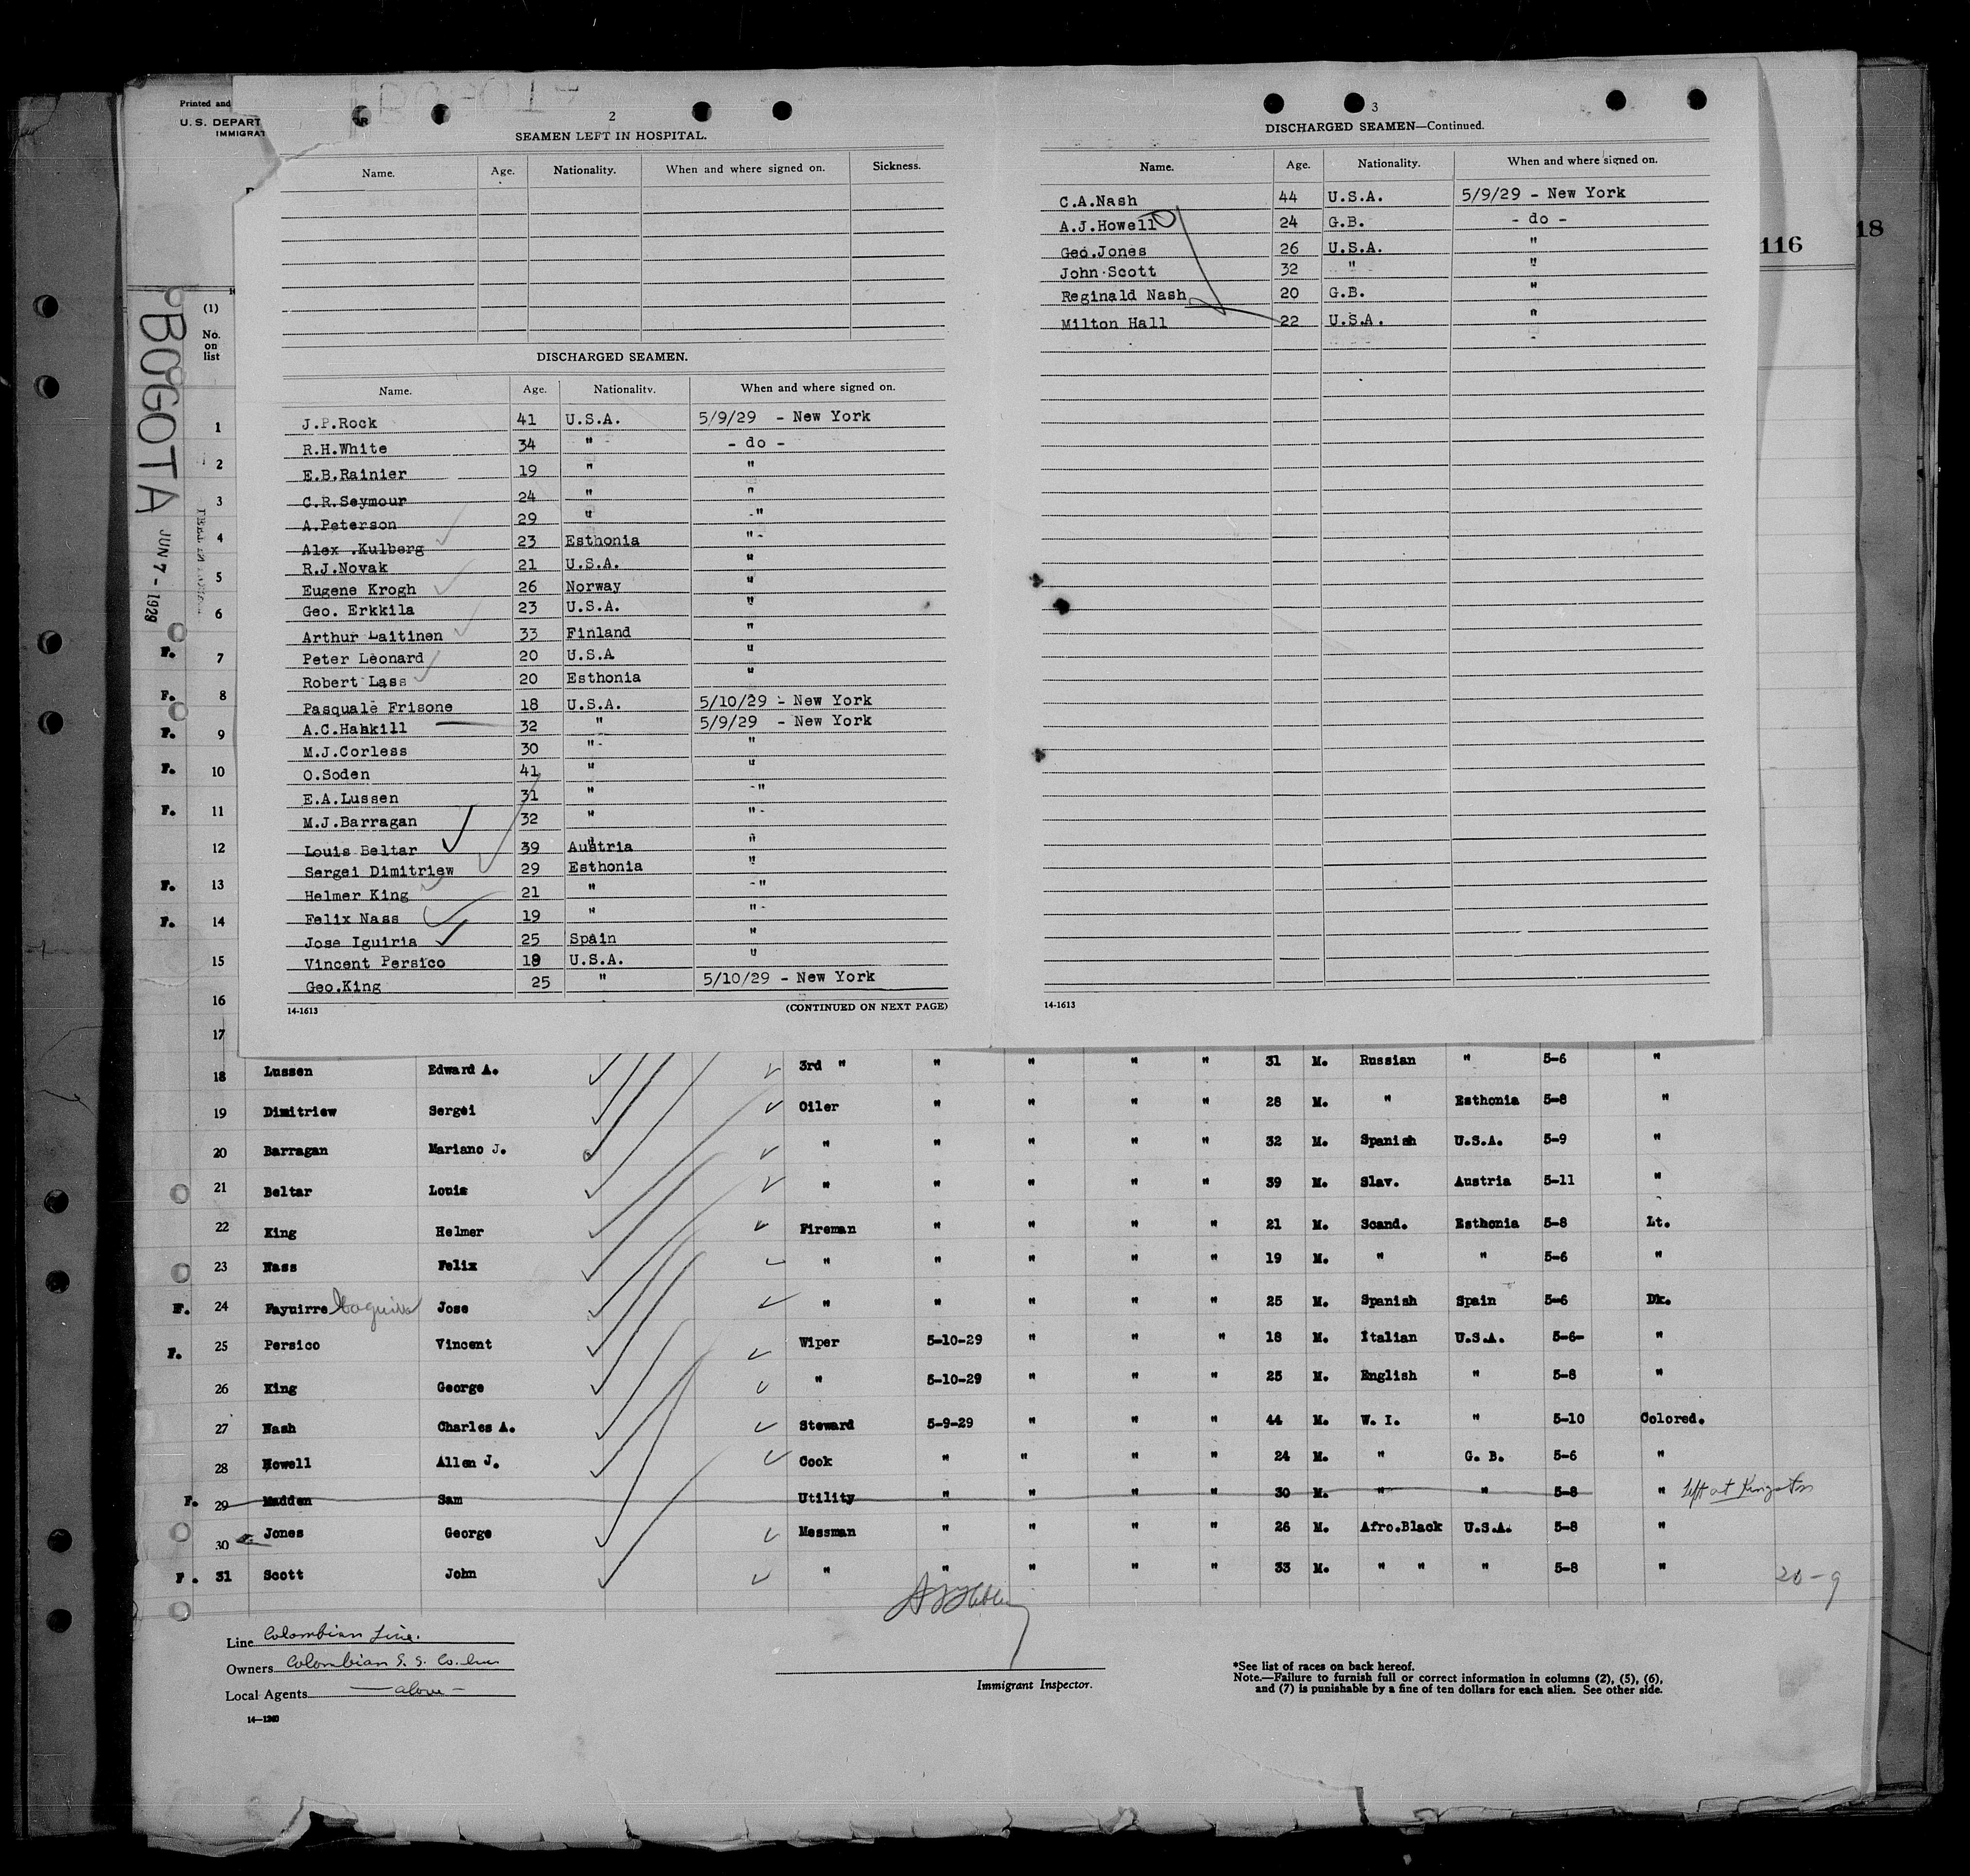 Printed and
U.S. DEPART
IMMIGRAT
BOGOTA
JUN 7 - 1929
(1)
No.
on
list
116
18
2
SEAMEN LEFT IN HOSPITAL.
Name. Age. Nationality. When and where signed on. Sickness.
DISCHARGED SEAMEN.
Name. Age. Nationality. When and where signed on.
J.P.Rock 41 U.S.A. 5/9/29 - New York
R.H.White 34 " - do -
E.B.Rainier 19 " "
C.R.Seymour 24 " "
A.Peterson 29 " -"
Alex .Kulberg 23 Esthonia "-
R.J.Novak 21 U.S.A. "
Eugene Krogh 26 Norway "
Geo. Erkkila 23 U.S.A. "
Arthur Laitinen 33 Finland "
Peter Leonard 20 U.S.A "
Robert Lass 20 Esthonia "
Pasquale Frisone 18 U.S.A. 5/10/29 - New York
A.C.Hankill 32 " 5/9/29 - New York
M.J.Corless 30 "- "
O.Soden 41 " "
E.A.Lussen 31 " -"
M.J.Barragan 32 " "-
Louis Beltar 39 Austria "
Sergei Dimitriew 29 Esthonia "
Helmer King 21 " -"
Felix Nass 19 " "-
Jose Iguiria 25 Spain "
Vincent Persico 19 U.S.A. "
Geo.King 25 " 5/10/29 - New York
14-1613 (CONTINUED ON NEXT PAGE)
3
DISCHARGED SEAMEN—Continued.
Name. Age. Nationality. When and where signed on.
C.A.Nash 44 U.S.A. 5/9/29 - New York
A.J.Howell 24 G.B. - do -
Geo.Jones 26 U.S.A. "
John Scott 32 " "
Reginald Nash 20 G.B. "
Milton Hall 22 U.S.A. "
14-1613
1
2
3
4
5
6
F. 7
F. 8
F. 9
F. 10
F. 11
12
F. 13
F. 14
15
16
17
18 Lussen Edward A. 3rd " " " " " 31 M. Russian " 5-6 "
19 Dimitriew Sergei Oiler " " " " 28 M. " Esthonia 5-8 "
20 Barragan Mariano J. " " " " " 32 M. Spanish U.S.A. 5-9 "
21 Beltar Louis " " " " " 39 M. Slav. Austria 5-11 "
22 King Helmer Fireman " " " " 21 M. Scand. Esthonia 5-8 Lt.
23 Nass Felix " " " " " 19 M. " " 5-6 "
F. 24 Fayuirre Jose " " " " " 25 M. Spanish Spain 5-6 Dk.
F. 25 Persico Vincent Wiper 5-10-29 " " " 18 M. Italian U.S.A. 5-6- "
26 King George " 5-10-29 " " " 25 M. English " 5-8 "
27 Nash Charles A. Steward 5-9-29 " " " 44 M. W. I. " 5-10 Colored.
28 Howell Allen J. Cook " " " " 24 M. " G. B. 5-6 "
F. 29 Madden Sam Utility " " " " 30 M. " " 5-8 " Left at Kingston
30 Jones George Messman " " " " 26 M. Afro.Black U.S.A. 5-8 "
F. 31 Scott John " " " " " 33 M. " " " 5-8 "
20-9
Line Colombian Line.
Owners Colombian S. S. Co. Inc
Local Agents — above —
14—1240
Immigrant Inspector.
*See list of races on back hereof.
Note.—Failure to furnish full or correct information in columns (2), (5), (6),
and (7) is punishable by a fine of ten dollars for each alien. See other side.